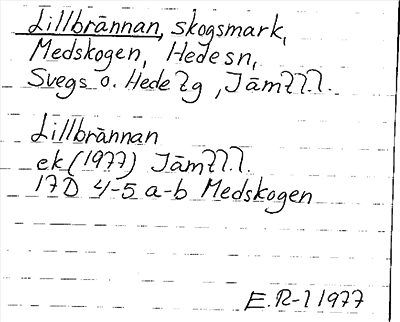 Lillbrännan, skogsmark,
Medskogen, Hede sn,
Svegs o. Hede tg, Jämtl.l.
Lillbrännan
ek (1977) Jämtl.l.
17D 4-5 a-b Medskogen
E.R-l 1977